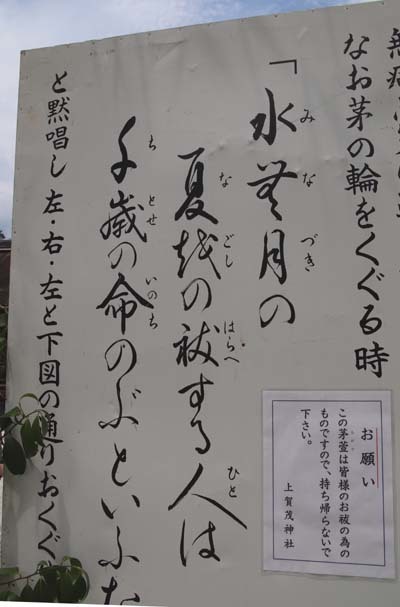 なお茅の輪をくぐる時
「水無月の
みなづき
夏越の祓する人は
なごし
はらへ
ひと
千歳の命のぶといふな
ちとせ
いのち
と黙唱し 左・右・左と下図の通りおくぐ
お願い
この茅萱は皆様のお祓の為の
ものですので、持ち帰らないで
下さい。
上賀茂神社